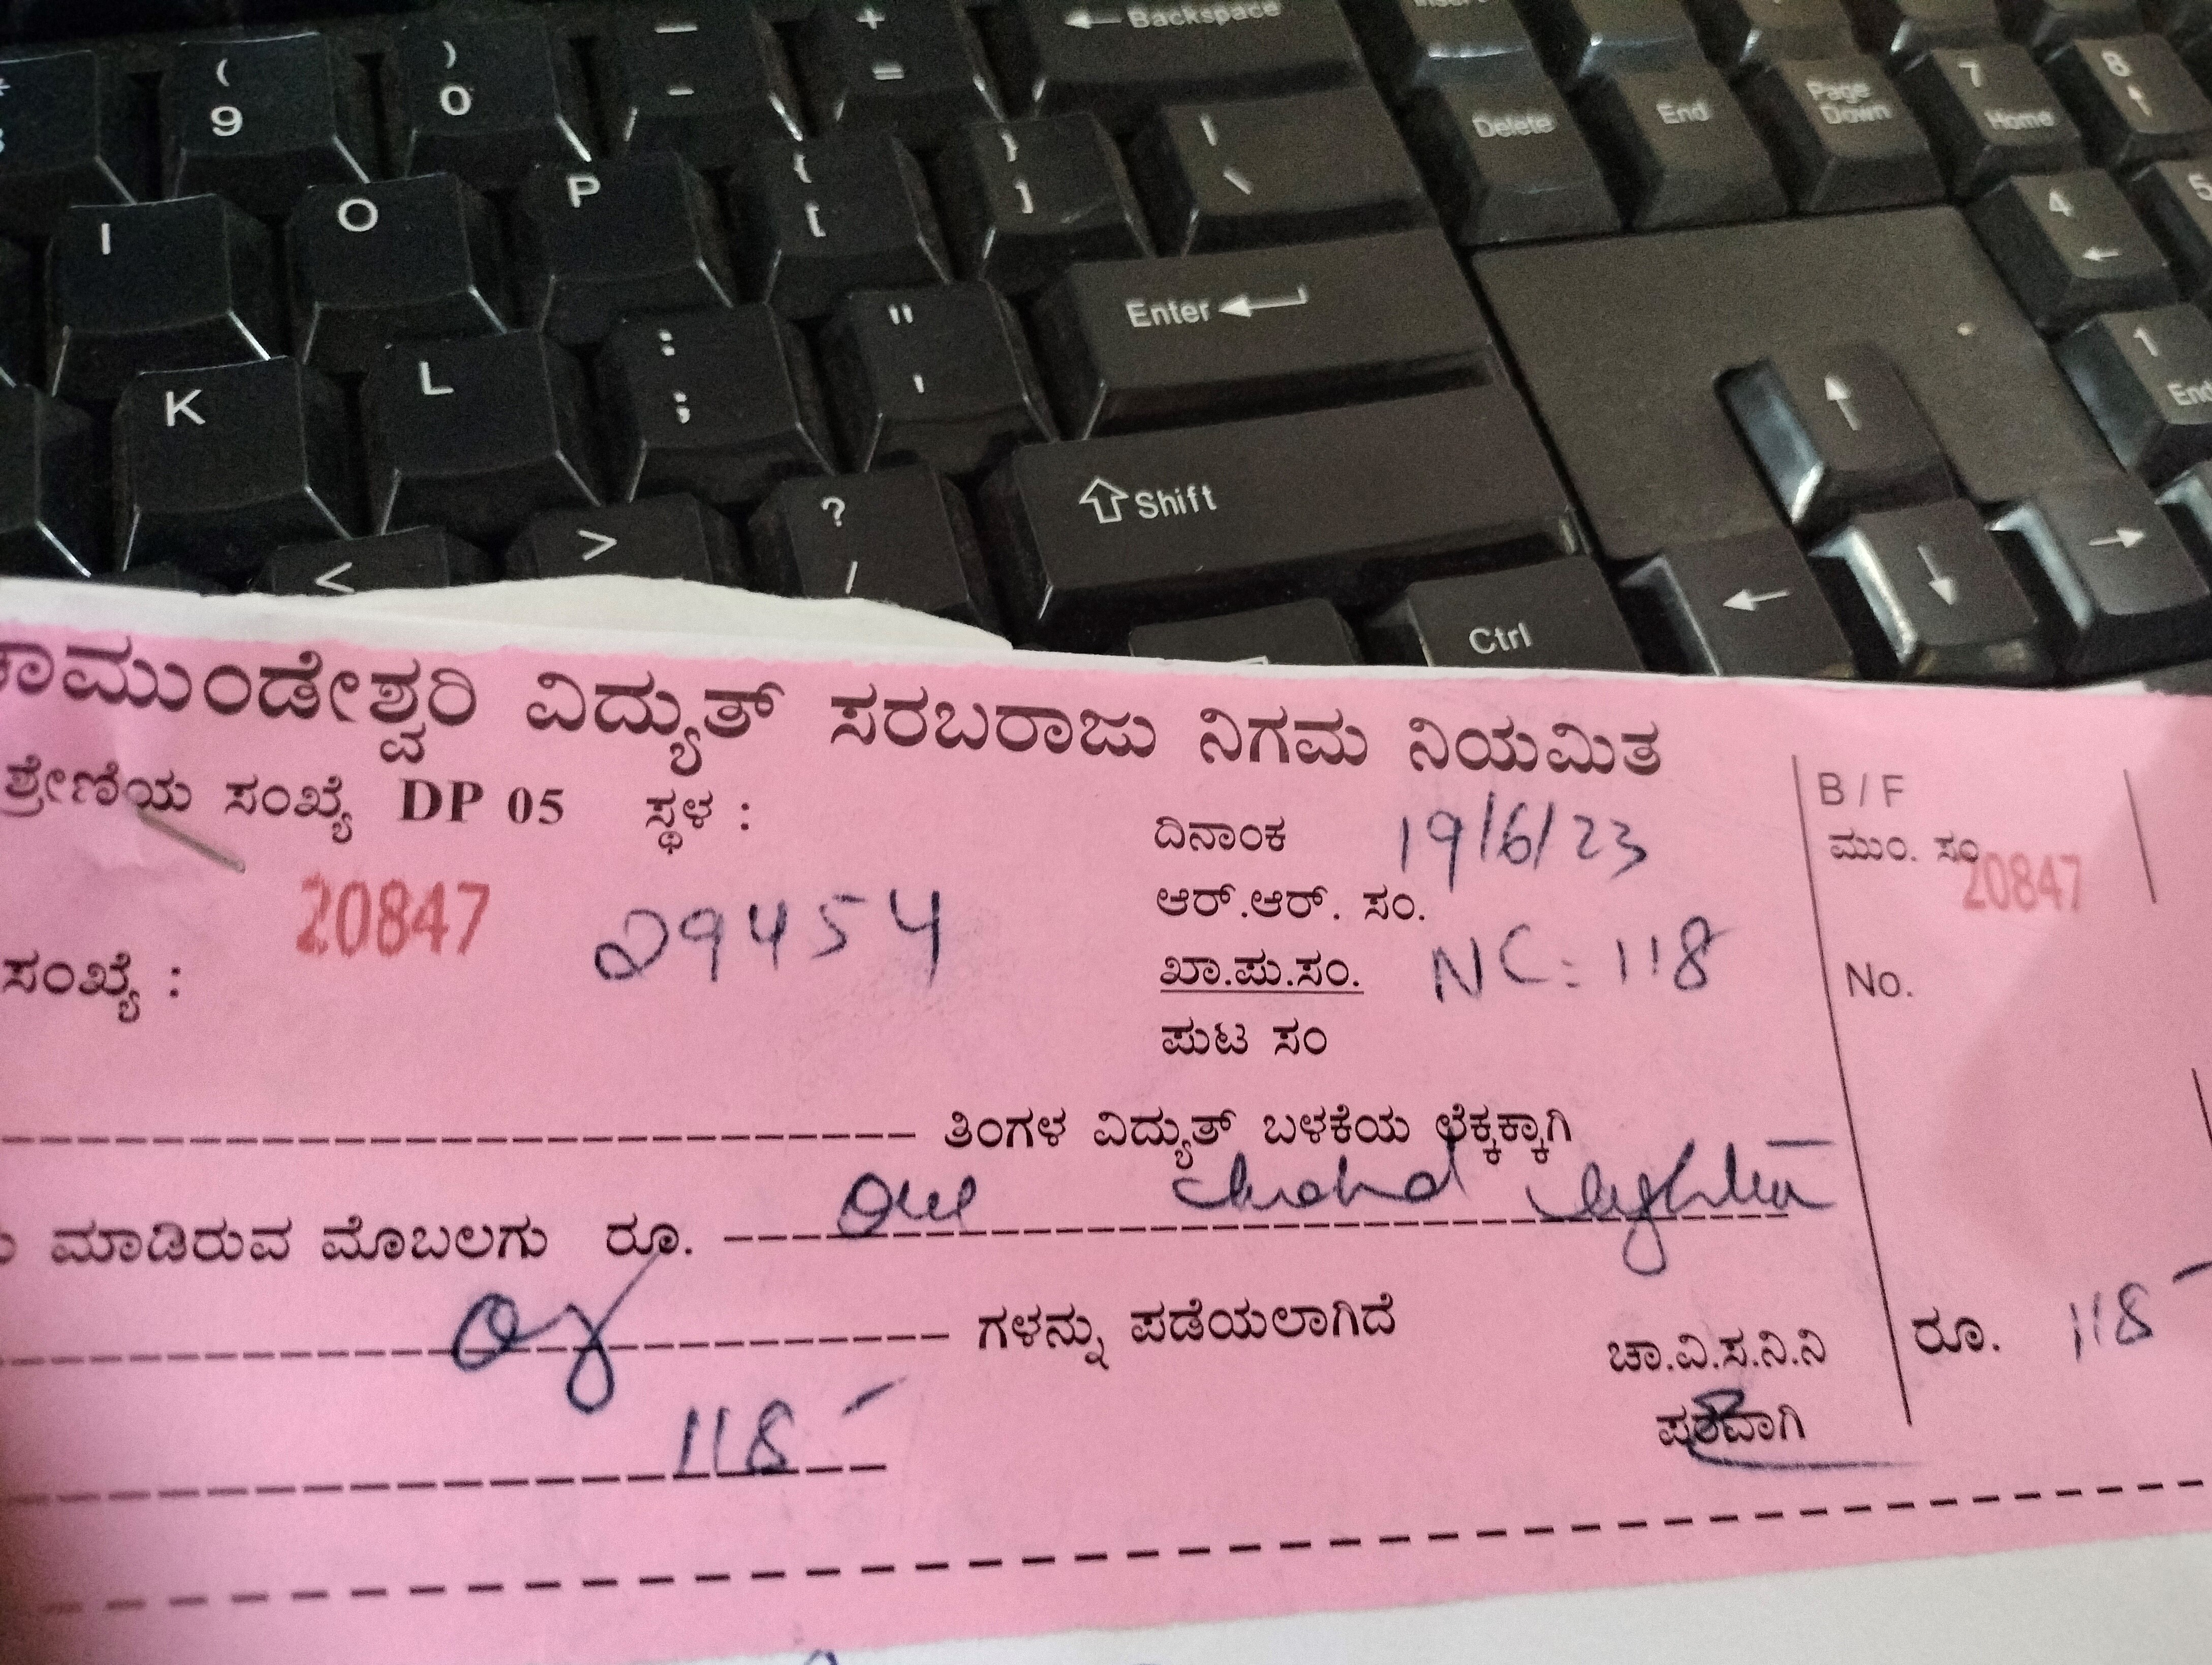 ← Backspace Insert
( 9 ) 0 _ - + = Delete End Page Down 7 Home 8 ↑
I O P { [ } ] | \ 4 ← 5
K L : ; " ' Enter ← 1 End
< > ? / Shift ↑
Ctrl ← ↓ →
ಚಾಮುಂಡೇಶ್ವರಿ ವಿದ್ಯುತ್ ಸರಬರಾಜು ನಿಗಮ ನಿಯಮಿತ
ಶ್ರೇಣಿಯ ಸಂಖ್ಯೆ DP 05 ಸ್ಥಳ :
ದಿನಾಂಕ 19/6/23
B / F
ಮುಂ. ಸಂ 20847
20847 29454
ಆರ್.ಆರ್. ಸಂ.
ಸಂಖ್ಯೆ :
ಖಾ.ಪು.ಸಂ. NC: 118
No.
ಪುಟ ಸಂ
ತಿಂಗಳ ವಿದ್ಯುತ್ ಬಳಕೆಯ ಲೆಕ್ಕಕ್ಕಾಗಿ
ಮಾಡಿರುವ ಮೊಬಲಗು ರೂ. One
ಗಳನ್ನು ಪಡೆಯಲಾಗಿದೆ
ಚಾ.ವಿ.ಸ.ನಿ.ನಿ
ರೂ. 118
118
ಪರವಾಗಿ